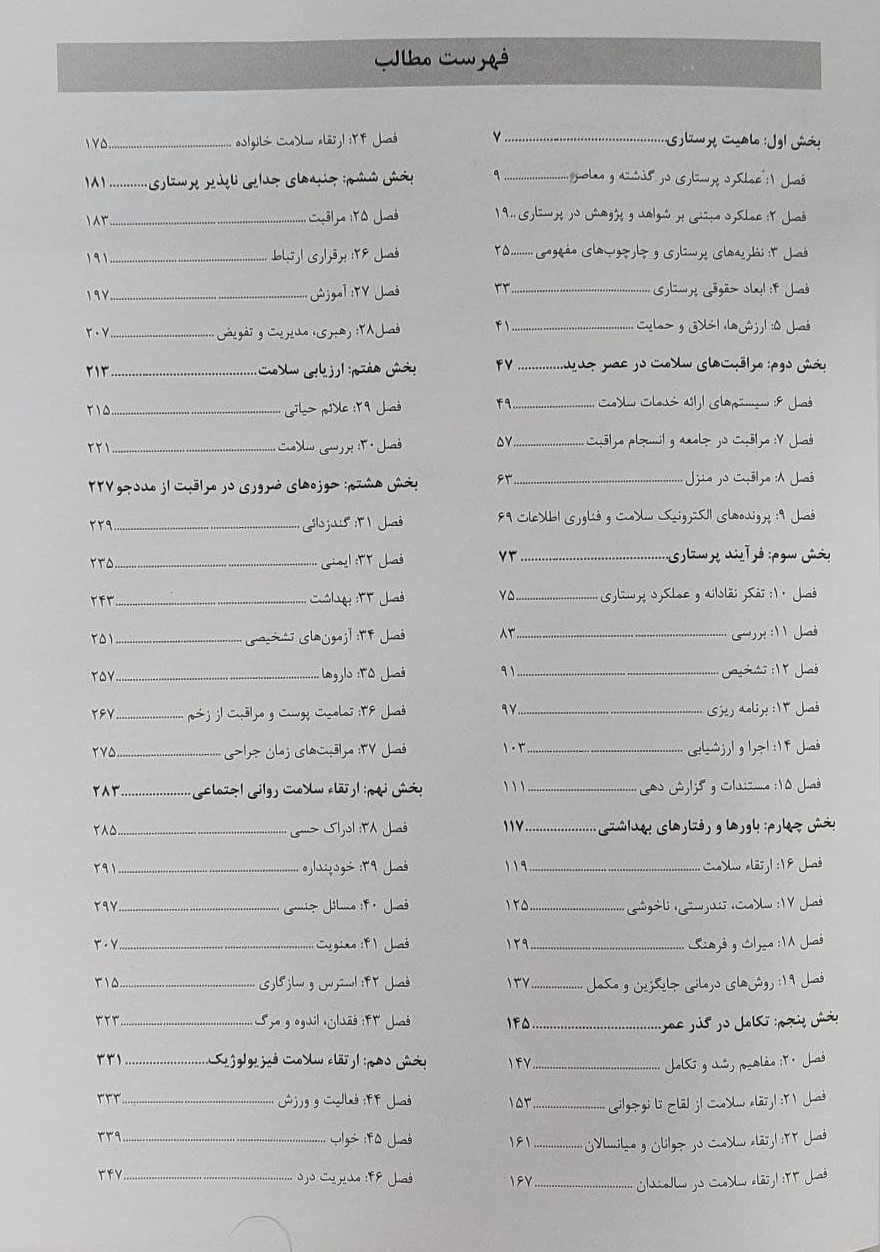 فهرست مطالب
بخش اول: ماهیت پرستاری ........ ۷
فصل ۱: عملکرد پرستاری در گذشته و معاصر ........ ۹
فصل ۲: عملکرد مبتنی بر شواهد و پژوهش در پرستاری ..۱۹
فصل ۳: نظریه‌های پرستاری و چارچوب‌های مفهومی ........ ۲۵
فصل ۴: ابعاد حقوقی پرستاری ........ ۳۳
فصل ۵: ارزش‌ها، اخلاق و حمایت ........ ۴۱
بخش دوم: مراقبت‌های سلامت در عصر جدید ........ ۴۷
فصل ۶: سیستم‌های ارائه خدمات سلامت ........ ۴۹
فصل ۷: مراقبت در جامعه و انسجام مراقبت ........ ۵۷
فصل ۸: مراقبت در منزل ........ ۶۳
فصل ۹: پرونده‌های الکترونیک سلامت و فناوری اطلاعات ۶۹
بخش سوم: فرآیند پرستاری ........ ۷۳
فصل ۱۰: تفکر نقادانه و عملکرد پرستاری ........ ۷۵
فصل ۱۱: بررسی ........ ۸۳
فصل ۱۲: تشخیص ........ ۹۱
فصل ۱۳: برنامه ریزی ........ ۹۷
فصل ۱۴: اجرا و ارزشیابی ........ ۱۰۳
فصل ۱۵: مستندات و گزارش دهی ........ ۱۱۱
بخش چهارم: باورها و رفتارهای بهداشتی ........ ۱۱۷
فصل ۱۶: ارتقاء سلامت ........ ۱۱۹
فصل ۱۷: سلامت، تندرستی، ناخوشی ........ ۱۲۵
فصل ۱۸: میراث و فرهنگ ........ ۱۲۹
فصل ۱۹: روش‌های درمانی جایگزین و مکمل ........ ۱۳۷
بخش پنجم: تکامل در گذر عمر ........ ۱۴۵
فصل ۲۰: مفاهیم رشد و تکامل ........ ۱۴۷
فصل ۲۱: ارتقاء سلامت از لقاح تا نوجوانی ........ ۱۵۳
فصل ۲۲: ارتقاء سلامت در جوانان و میانسالان ........ ۱۶۱
فصل ۲۳: ارتقاء سلامت در سالمندان ........ ۱۶۷
فصل ۲۴: ارتقاء سلامت خانواده ........ ۱۷۵
بخش ششم: جنبه‌های جدایی ناپذیر پرستاری ........ ۱۸۱
فصل ۲۵: مراقبت ........ ۱۸۳
فصل ۲۶: برقراری ارتباط ........ ۱۹۱
فصل ۲۷: آموزش ........ ۱۹۷
فصل۲۸: رهبری، مدیریت و تفویض ........ ۲۰۷
بخش هفتم: ارزیابی سلامت ........ ۲۱۳
فصل ۲۹: علائم حیاتی ........ ۲۱۵
فصل۳۰: بررسی سلامت ........ ۲۲۱
بخش هشتم: حوزه‌های ضروری در مراقبت از مددجو ۲۲۷
فصل ۳۱: گندزدائی ........ ۲۲۹
فصل ۳۲: ایمنی ........ ۲۳۵
فصل ۳۳: بهداشت ........ ۲۴۳
فصل ۳۴: آزمون‌های تشخیصی ........ ۲۵۱
فصل ۳۵: داروها ........ ۲۵۷
فصل ۳۶: تمامیت پوست و مراقبت از زخم ........ ۲۶۷
فصل ۳۷: مراقبت‌های زمان جراحی ........ ۲۷۵
بخش نهم: ارتقاء سلامت روانی اجتماعی ........ ۲۸۳
فصل ۳۸: ادراک حسی ........ ۲۸۵
فصل ۳۹: خودپنداره ........ ۲۹۱
فصل ۴۰: مسائل جنسی ........ ۲۹۷
فصل ۴۱: معنویت ........ ۳۰۷
فصل ۴۲: استرس و سازگاری ........ ۳۱۵
فصل ۴۳: فقدان، اندوه و مرگ ........ ۳۲۳
بخش دهم: ارتقاء سلامت فیزیولوژیک ........ ۳۳۱
فصل ۴۴: فعالیت و ورزش ........ ۳۳۳
فصل ۴۵: خواب ........ ۳۳۹
فصل ۴۶: مدیریت درد ........ ۳۴۷